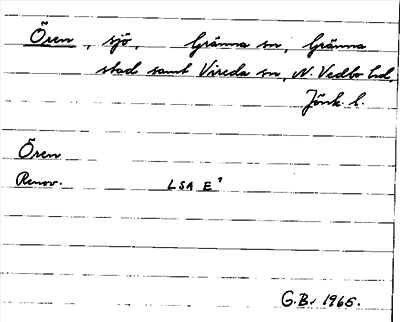 Ören, sjö, Gränna sn, Gränna
stad samt Vireda sn, N. Vedbo hd,
Jönk. l.
Ören
Renov. LSA E¹
G.B. 1965.